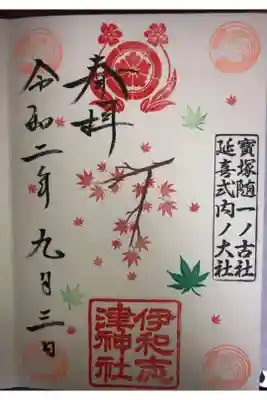 寶塚随一ノ古社
延喜式内ノ大社
奉拝
伊和志
津神社
令和二年九月三日